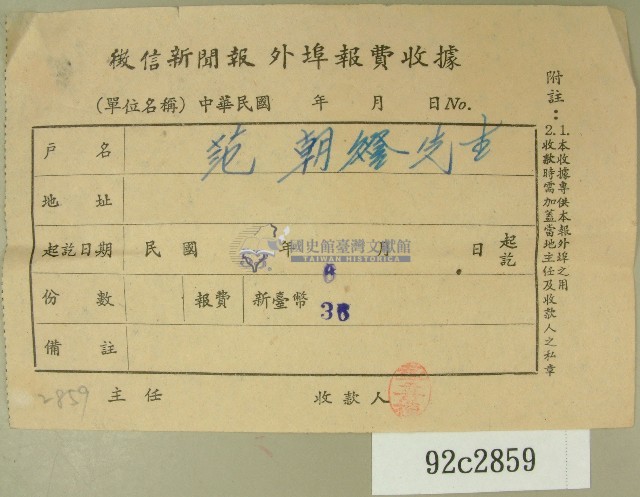 徵信新聞報 外埠報費收據
(單位名稱) 中華民國 年 月 日 No.
戶名 范朝燈先生
地址
起訖日期 民國 年 月 日 起訖
國史館臺灣文獻館
TAIWAN HISTORICA
6
份數 報費 新臺幣 36
備註
2859 主任 收款人
附註：
1.本收據專供本報外埠之用
2.收款時需加蓋當地主任及收款人之私章
92c2859